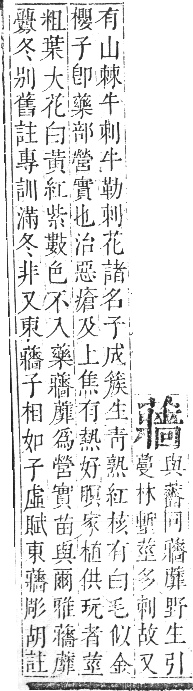 蘠
與薔同蘠蘼野生引
蔓林塹莖多刺故又
有山棘牛刺牛勒刺花諸名子成簇生靑熟紅核有白毛似金
櫻子卽藥部營實也治惡瘡及上焦有熱好瞑家植供玩者莖
粗葉大花白黃紅紫數色不入藥蘠蘼爲營實苗與爾雅蘠蘼
虋冬别舊註專訓滿冬非又東蘠子相如子虛賦東蘠彫胡註